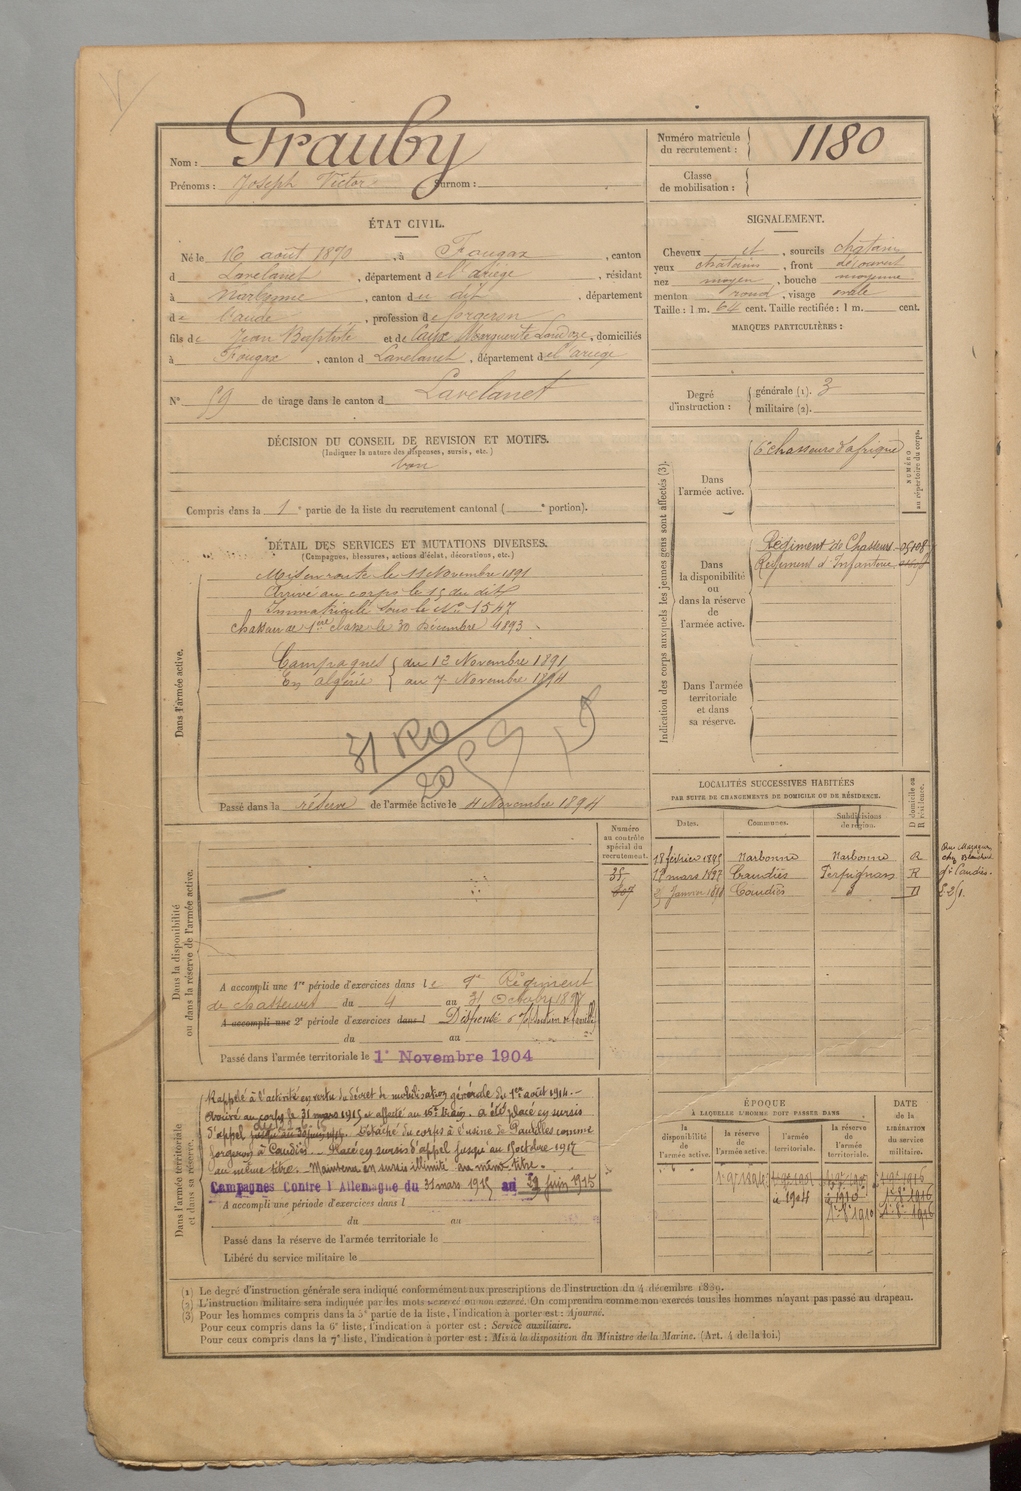 Nom : Frauby
Prénoms : Joseph Victor Surnom :
Numéro matricule du recrutement : 1180
Classe de mobilisation :
ÉTAT CIVIL.
Né le 16 août 1870, à Fougax, canton
d Lavelanet, département de l'ariège, résidant
à Narbonne, canton du dit, département
de l'aude, profession de forgeron
fils de Jean Baptiste et de Caux Marguerite, domiciliés
à Fougax, canton d Lavelanet, département de l'ariège
N° 59 de tirage dans le canton d Lavelanet
SIGNALEMENT.
Cheveux et, sourcils chatain
yeux chatains, front découvert
nez moyen, bouche moyenne
menton rond, visage ovale
Taille : 1 m. 64 cent. Taille rectifiée : 1 m. cent.
MARQUES PARTICULIÈRES :
Degré d'instruction : générale (1). 3
militaire (2).
DÉCISION DU CONSEIL DE REVISION ET MOTIFS.
(Indiquer la nature des dispenses, sursis, etc.)
bon
Compris dans la 1e partie de la liste du recrutement cantonal ( e portion).
DÉTAIL DES SERVICES ET MUTATIONS DIVERSES.
(Campagnes, blessures, actions d'éclat, décorations, etc.)
Dans l'armée active.
Mis en route le 11 Novembre 1891
Arrivé au corps le 15 du dit
Immatriculé sous le No 1547
chasseur de 1ère classe le 30 Décembre 1893
Campagnes du 12 Novembre 1891
En algérie au 7 Novembre 1894
31 RO
Passé dans la réserve de l'armée active le 4 Novembre 1894
Indication des corps auxquels les jeunes gens sont affectés (3).
NUMÉRO au répertoire du corps.
Dans l'armée active.
6e chasseurs d'afrique
Dans la disponibilité ou dans la réserve de l'armée active.
Régiment de Chasseurs
Régiment d'Infanterie
Dans l'armée territoriale et dans sa réserve.
LOCALITÉS SUCCESSIVES HABITÉES
PAR SUITE DE CHANGEMENTS DE DOMICILE OU DE RÉSIDENCE.
Dates. Communes. Subdivisions de région. D domicile ou R résidence.
18 février 1895 Narbonne Narbonne R
mars 1897 Caudiès Perpignan R
Janvier Caudiès " D
Dans la disponibilité ou dans la réserve de l'armée active.
Numéro au contrôle spécial du recrutement.
A accompli une 1re période d'exercices dans le 9e Régiment
de chasseurs du 4 au 31 Octobre
A accompli une 2e période d'exercices dans l Dispensé
du au
Passé dans l'armée territoriale le 1er Novembre 1904
Dans l'armée territoriale et dans sa réserve.
Rappelé à l'activité en vertu du décret de mobilisation générale du 1er août 1914. –
Arrivé au corps le 31 mars 1915 et affecté au 16e train. a été placé en sursis
d'appel Détaché du corps à l'usine de comme
forgeron à Caudiès – Placé en sursis d'appel jusqu'au 15 octobre 1917
au même titre. – Maintenu en sursis illimité au même titre.
Campagnes Contre l'Allemagne du 31 mars 1915 au juin 1915
A accompli une période d'exercices dans l
du au
Passé dans la réserve de l'armée territoriale le
Libéré du service militaire le
ÉPOQUE
À LAQUELLE L'HOMME DOIT PASSER DANS
la disponibilité de l'armée active. la réserve de l'armée active. l'armée territoriale. la réserve de l'armée territoriale.
DATE de la LIBÉRATION du service militaire.
(1) Le degré d'instruction générale sera indiqué conformément aux prescriptions de l'instruction du 4 décembre 1889.
(2) L'instruction militaire sera indiquée par les mots exercé ou non exercé. On comprendra comme non exercés tous les hommes n'ayant pas passé au drapeau.
(3) Pour les hommes compris dans la 5e partie de la liste, l'indication à porter est : Ajourné.
Pour ceux compris dans la 6e liste, l'indication à porter est : Service auxiliaire.
Pour ceux compris dans la 7e liste, l'indication à porter est : Mis à la disposition du Ministre de la Marine. (Art. 4 de la loi.)